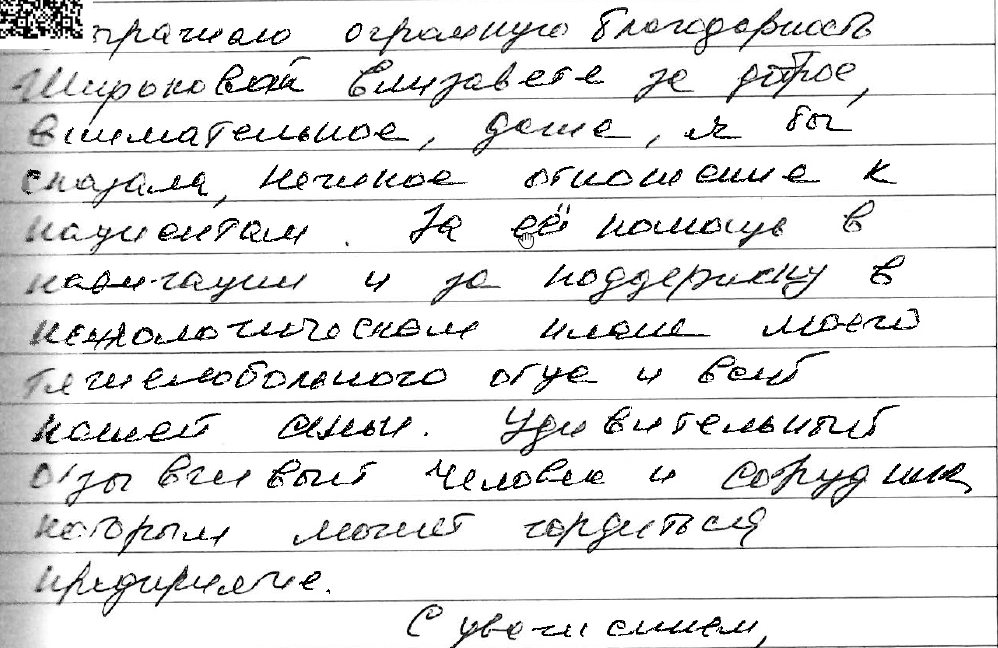 Выражаю огромную благодарность
Широковой Елизавете за доброе,
внимательное, даже, я бы
сказала, нежное отношение к
пациентам. За её помощь в
навигации и за поддержку в
психологическом плане моего
тяжелобольного отца и всей
нашей семьи. Удивительный
отзывчивый человек и сотрудник,
которым может гордиться
предприятие.
С уважением,